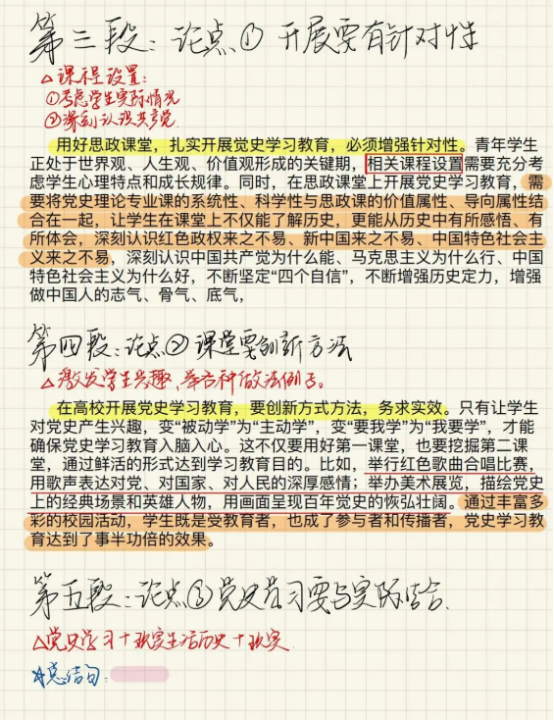 第三段：论点① 开展要有针对性
△课程设置：
①考虑学生实际情况
②深刻认识共产党
用好思政课堂，扎实开展党史学习教育，必须增强针对性。青年学生
正处于世界观、人生观、价值观形成的关键期，相关课程设置需要充分考
虑学生心理特点和成长规律。同时，在思政课堂上开展党史学习教育，需
要将党史理论专业课的系统性、科学性与思政课的价值属性、导向属性结
合在一起，让学生在课堂上不仅能了解历史，更能从历史中有所感悟、有
所体会，深刻认识红色政权来之不易、新中国来之不易、中国特色社会主
义来之不易，深刻认识中国共产党为什么能、马克思主义为什么行、中国
特色社会主义为什么好，不断坚定“四个自信”，不断增强历史定力，增强
做中国人的志气、骨气、底气，
第四段：论点② 课堂要创新方法
△激发学生兴趣、举各种做法例子。
在高校开展党史学习教育，要创新方式方法，务求实效。只有让学生
对党史产生兴趣，变“被动学”为“主动学”，变“要我学”为“我要学”，才能
确保党史学习教育入脑入心。这不仅要用好第一课堂，也要挖掘第二课
堂，通过鲜活的形式达到学习教育目的。比如，举行红色歌曲合唱比赛，
用歌声表达对党、对国家、对人民的深厚感情；举办美术展览，描绘党史
上的经典场景和英雄人物，用画面呈现百年党史的恢弘壮阔。通过丰富多
彩的校园活动，学生既是受教育者，也成了参与者和传播者，党史学习教
育达到了事半功倍的效果。
第五段：论点③党史学习要与实际结合.
△党史学习＋现实生活历史＋现实
☆总结句：